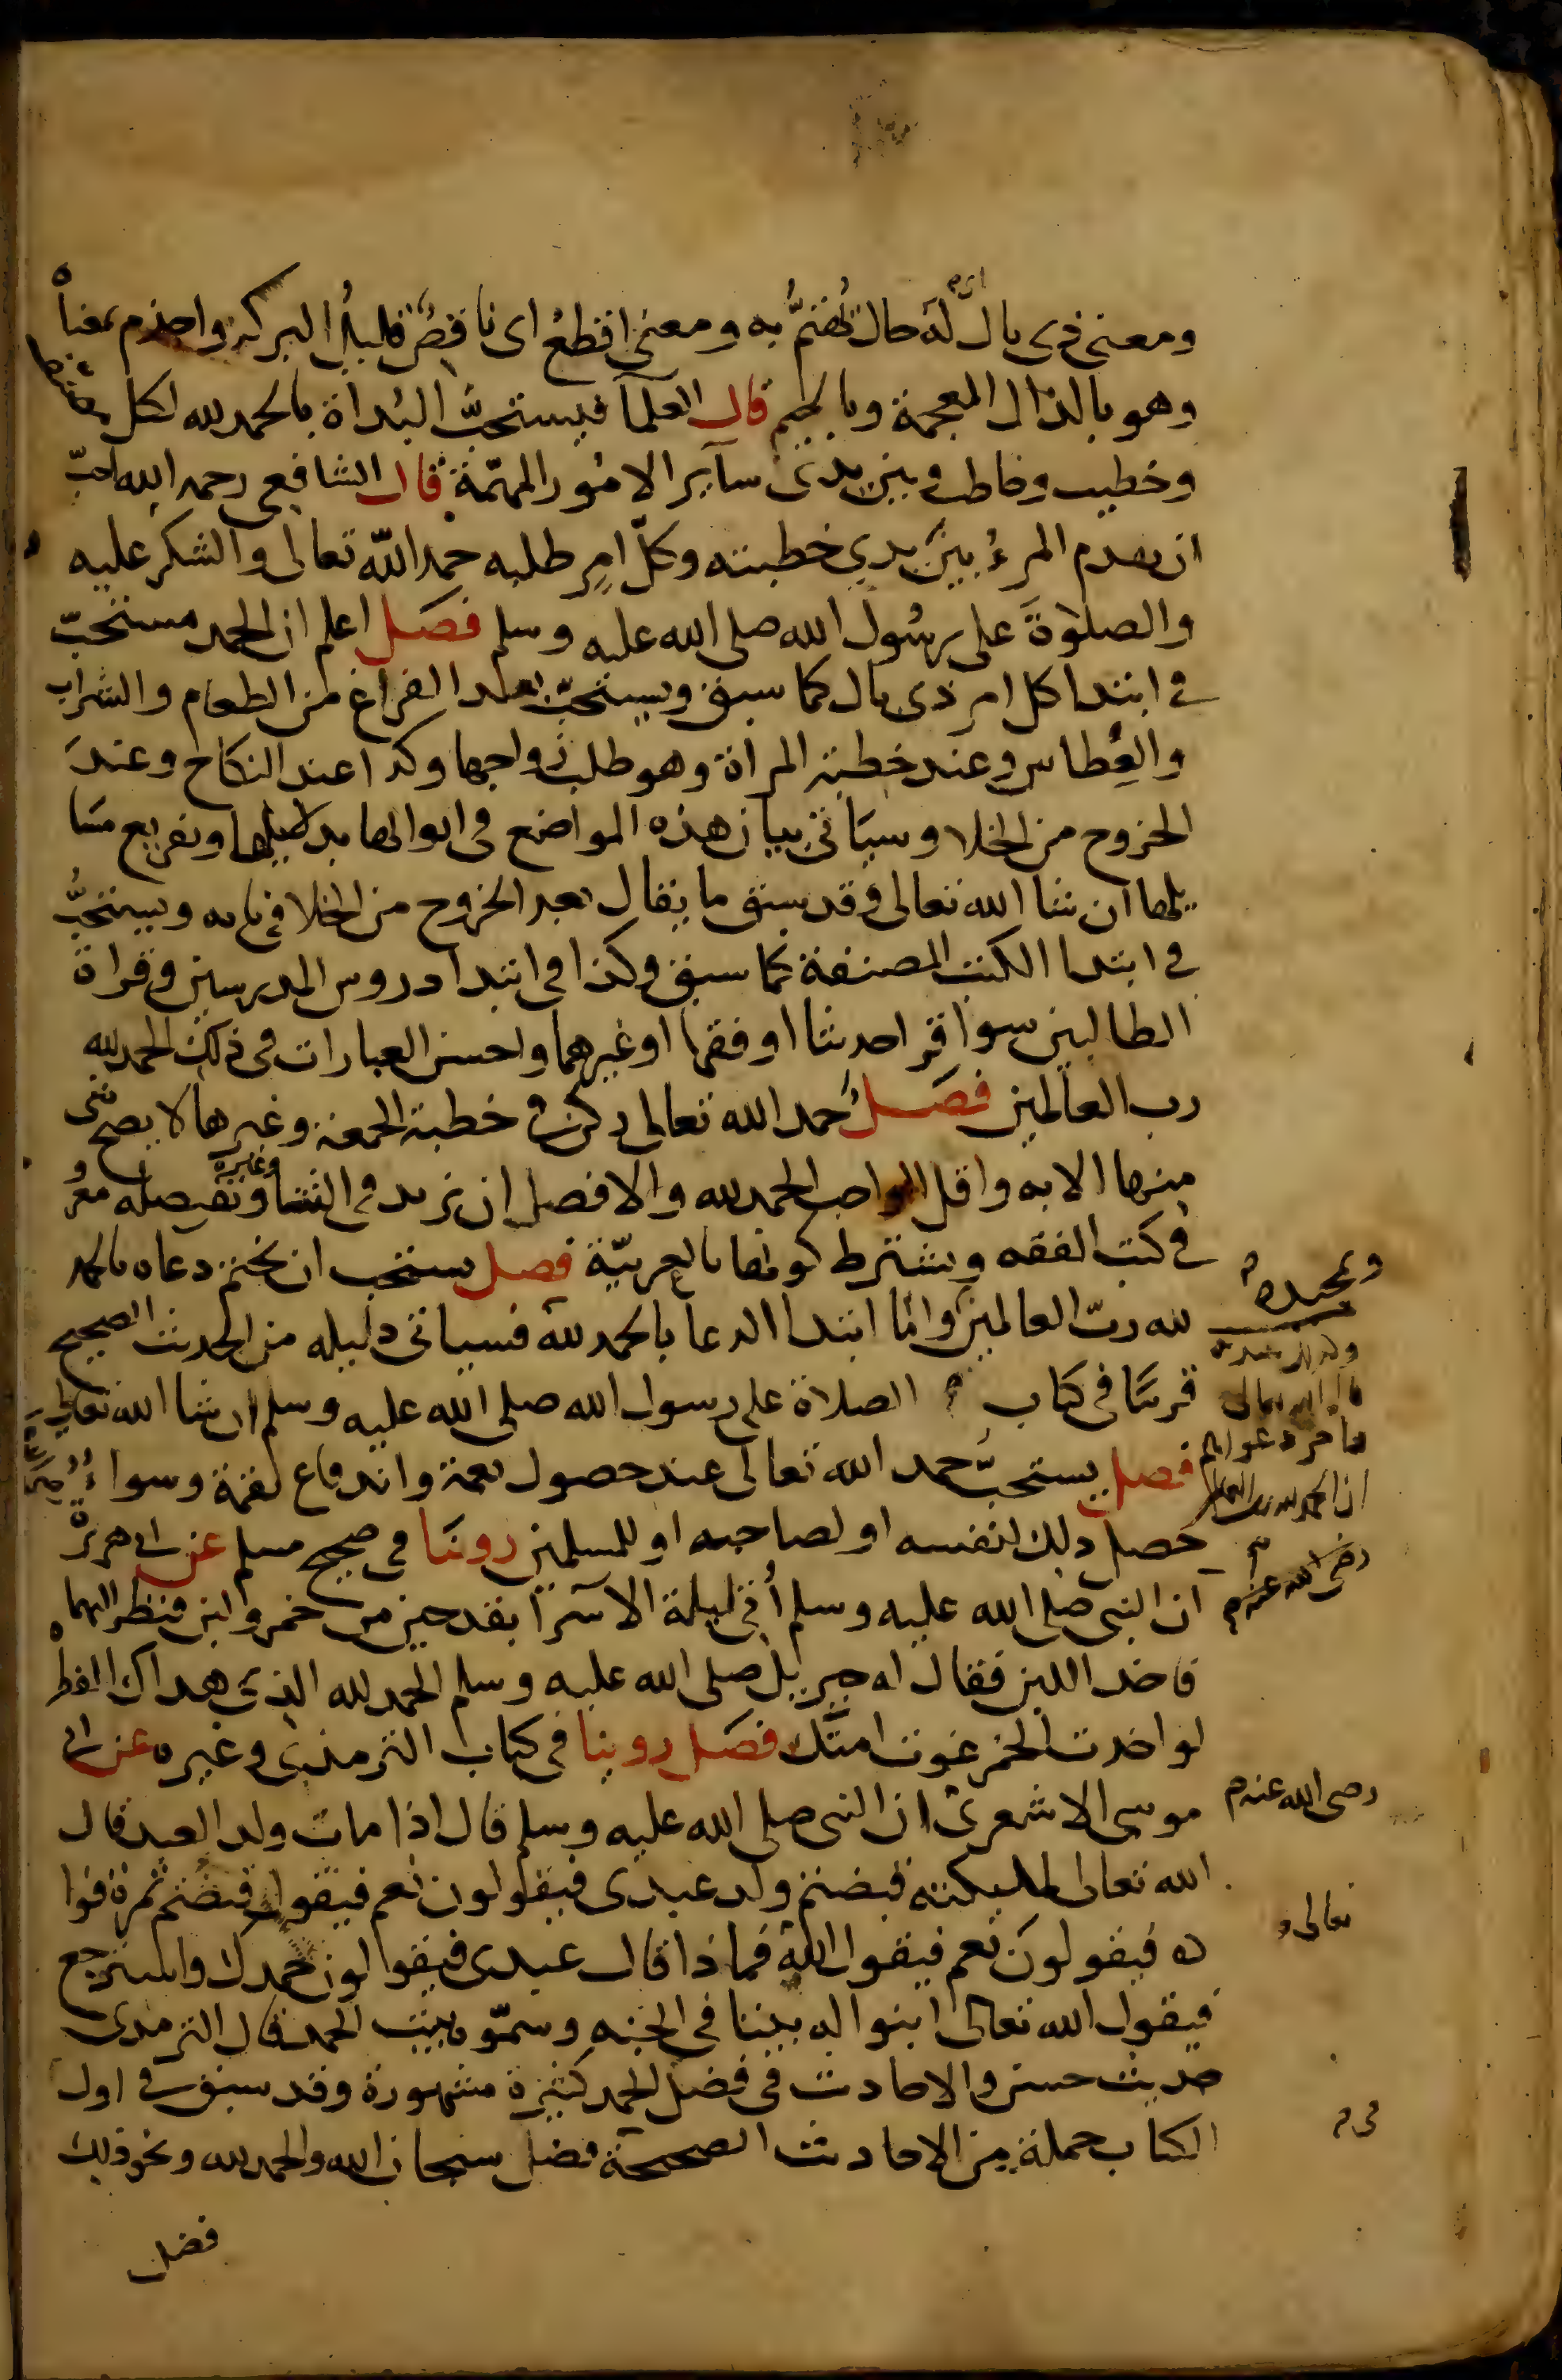 ومعنى ذي بال اي له حال يُهتمُّ به ومعنى اقطعُ اى ناقصٌ قليلُ البركة واجذم بمعناه
وهو بالذال المعجمة وبالجيم قال العلمآ فيستحبُّ البُداة بالحمد لله لكل مصنف
وخطيب وخاطب وبين يدى سآير الامُور المهمّة قال الشافعي رحمه الله احبّ
ان يقدم المرءُ بينَ يدي خطبته وكلّ امرٍ طلبه حمد اللّه تعالى والشكر عليه
والصلوٰةَ على رسُول الله صلى الله عليه وسلم فصَل اعلم ان الحمد مستحبّ
في ابتدا كل امر ذى بال كما سبق ويستحبّ بعد الفراغ من الطعام والشراب
والعُطاس وعند خطبة المراة وهو طلب زواجها وكذا عند النكاح وعندَ
الخروج من الخلا وسيَاتى بيان هذه المواضع فى ابوابها بدلايلها وتفريع مسَا
يلها ان شا الله تعالى وقد سبق ما يقال بعد الخروج من الخلا في بابه ويستحبُّ
في ابتدا الكتب المصنفة كما سبق وكذا فى ابتدا دروس المدرسين وقراة
الطالبين سوا قرا حديثا او فقها او غيرهما واحسن العبارات فى ذلك الحمد لله
رب العالمين فصَل حمد الله تعالى ركن في خطبة الجمعة وغيرها لا يصح شى
منها الا به واقل الواجب الحمد لله والافضل ان يزيد فى الثنا وتفصيله معر
وُ
في كتب الفقه ويشترط كونها بالعربيّة فصل يستحب ان يختم دعاه بالحمد
لله ربّ العالمين وامّا ابتدا الدعا بالحمد لله فسياتى دليله من الحديث الصحيح
قريبًا فى كتاب الصلاة على رسول الله صلى الله عليه وسلم ان شا الله تعالى
فصل يستحبّ حمد الله تعالى عند حصول نعمة واندفاع نقمة وسواءُ
حصل ذلك لنفسه او لصاحبه او للمسلمين روينَا فى صحيح مسلم عن ابي هريرة
ان النبى صلى الله عليه وسلم أُتى ليلة الاسرآ بقدحين من خمر ولبن فنظر اليهما
فاخذ اللبن فقال له جبريل صلى الله عليه وسلم الحمد لله الذى هداك للفطر
لو اخذت الخمر غوت امتُك فصَل روينا فى كتاب الترمذى وغيره عن ابى
موسى الاشعرى ان النبى صلى الله عليه وسلم قال اذا مات ولد العبد قال
الله تعالى لملايكته قبضتم ولد عبدى فيقولون نعم فيقول قبضتم ثمرة فوا
ده فيقولونَ نعم فيقول الله فماذا قال عبدى فيقولون حمدك واسترجع
فيقول الله تعالى ابنوا له بيتا فى الجنه وسمّوه بيت الحمد قال الترمذى
حديث حسن والاحاديث فى فضل الحمد كثيرة مشهورة وقد سبق في اول
الكتاب جملة من الاحاديث الصحيحة فضل سبحان الله والحمد لله ونحو ذلك
فضل
وغيره
وتحميده
قال الله تعالى
واخر دعواهم
ان الحمد لله رب العالمين
رضى الله عنه م
رضى الله عنه م
تعالى
فى م